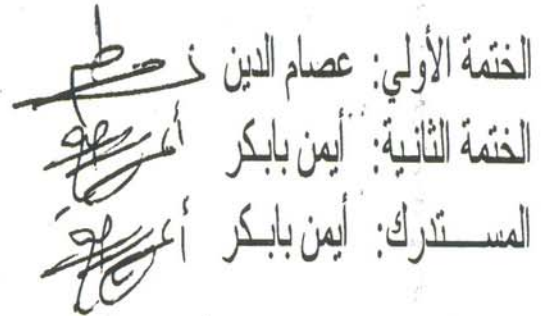 الختمة الأولي: عصام الدين
الختمة الثانية: أيمن بابكر
المستدرك: أيمن بابكر